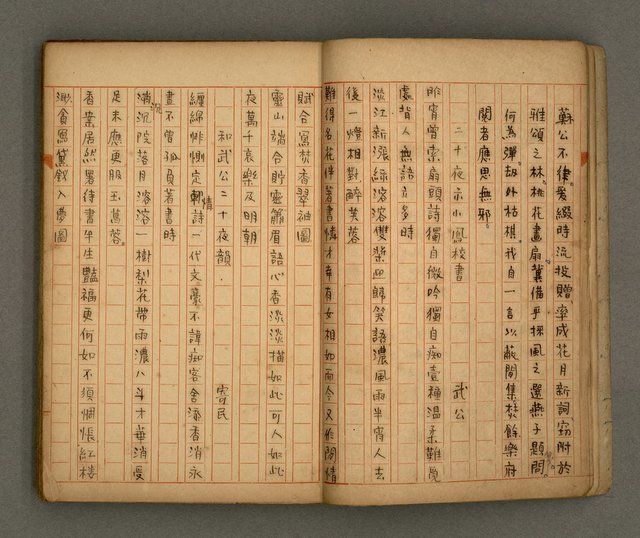 蘇公不律愛綴時流投贈率成花月新詞窃附於
雅頌之林桃花畫扇冀備乎採風之選燕子題問
何為彈劫外枯棋我自一言以蔽閒集焚餘樂府
閱者應思無邪
二十夜示小鳳校書　武公
昨宵曾索扇頭詩獨自微吟獨自痴壹種温柔難覓
處背人無語立多時
淡江新漲綠溶溶雙槳迎歸笑語濃風雨半宵人去
後一燈相對醉芙蓉
難得名花伴著書憐才幸有女相如而今又作閒情
賦合寫焚香翠袖圖
靈山端合貯靈簫眉語心香淡淡描如此可人如此
夜萬千哀樂及明朝
和武公二十夜韻　寄民
纏綿悱惻定情詩一代文豪不諱痴客舍添香消永
晝不曾孤負著書時
消沉院落月溶溶一樹梨花帶雨濃八斗才華消受
足未應更服玉芙蓉
香案居然署侍書半生艷福更何如不須惆悵紅樓
渺貪寫黛釵入夢圖